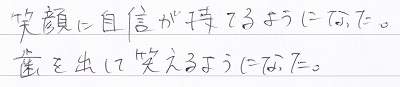 笑顔に自信が持てるようになった。
歯を出して笑えるようになった。